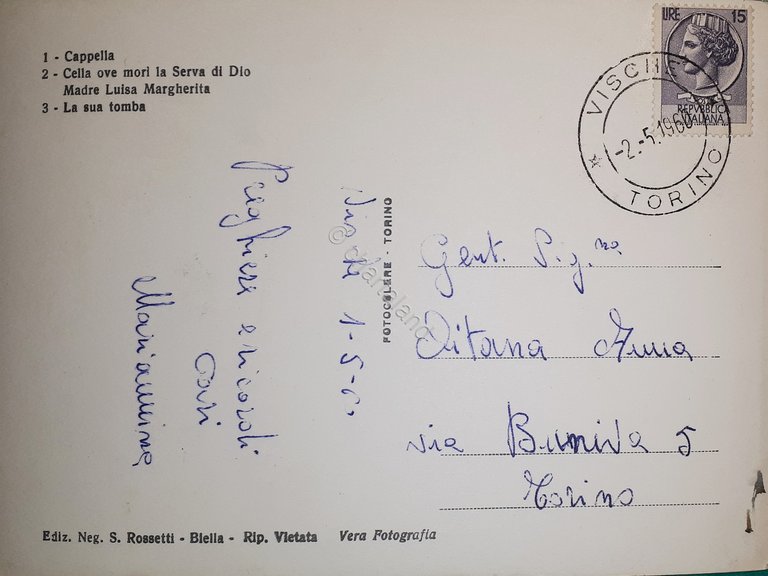 1 - Cappella
2 - Cella ove morì la Serva di Dio
Madre Luisa Margherita
3 - La sua tomba
LIRE 15
REPVBBLICA
ITALIANA
VISCHE
-2.-5.1960
* TORINO
Vische 1-5-60
Preghiere e ricordi
cari
Mariannina
FOTOCELERE - TORINO
© Charta
Gent. Sig.na
Ditana Anna
via Buniva 5
Torino
Ediz. Neg. S. Rossetti - Biella - Rip. Vietata Vera Fotografia